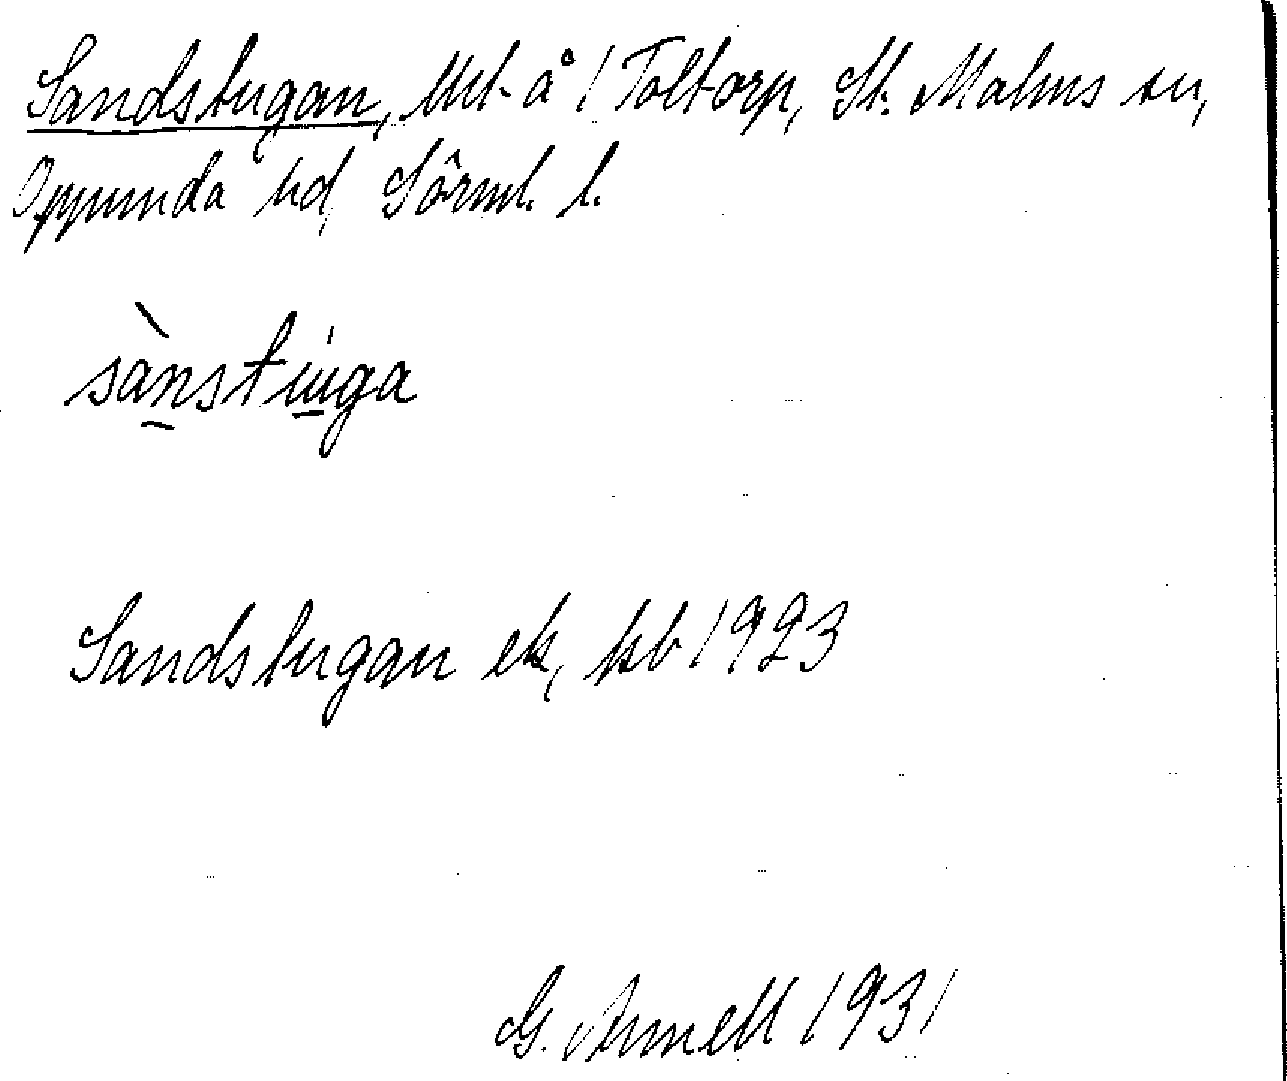 Sandstugan, Utet å / Toltorp, St. Malms sn,
Oppunda hd, Sörml. l.
sànstuga
Sandstugan ek, kb 1923
G. Arnell 1931